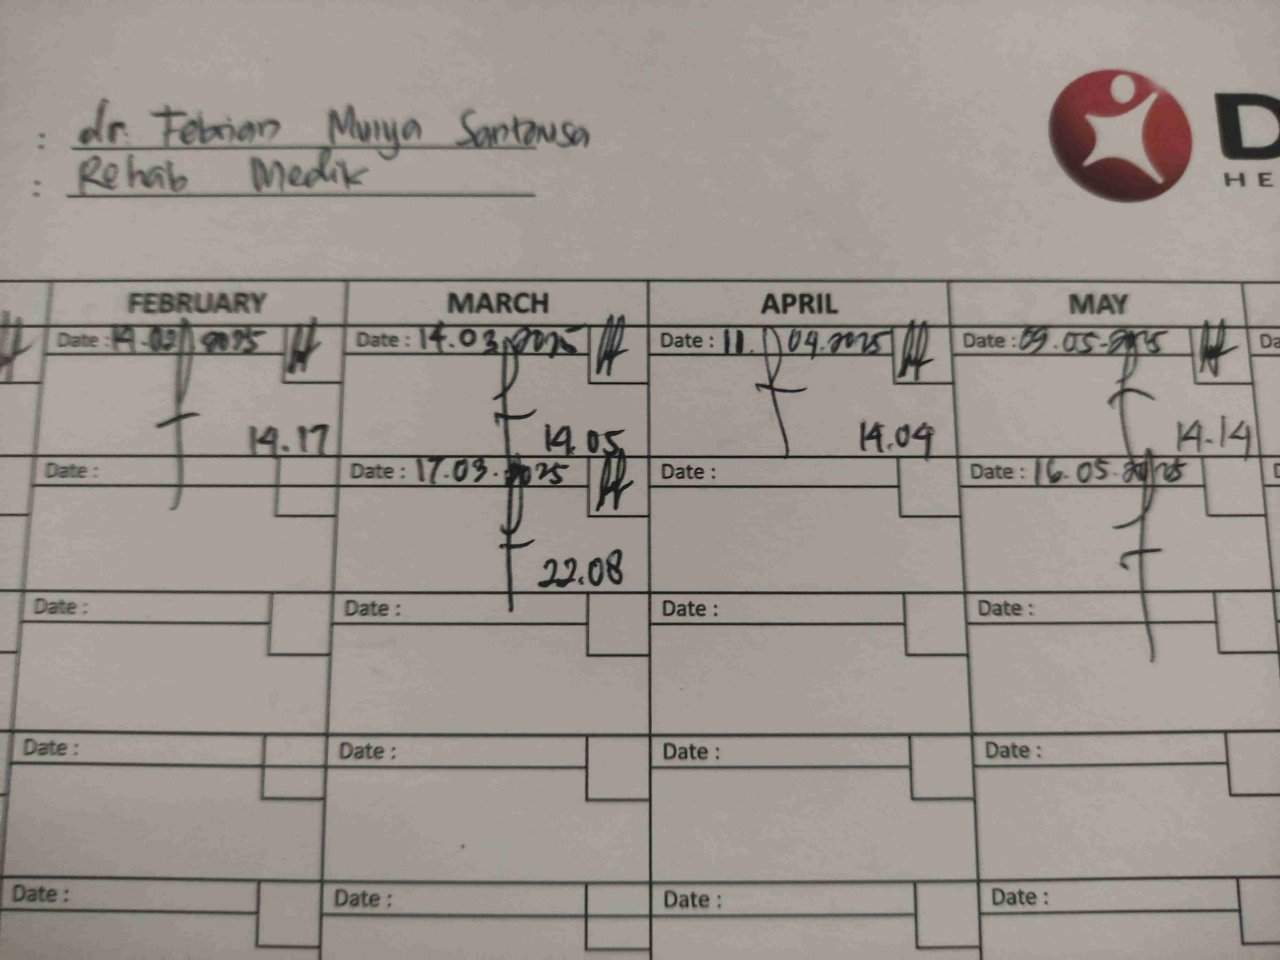 : dr. Febrian Mulya Santausa
: Rehab Medik
D
HE
FEBRUARY MARCH APRIL MAY
Date : 14.02.2025 Date : 14.03.2025 Date : 11.04.2025 Date : 09.05.2025 Da
14.17 14.05 14.04 14.14
Date : Date : 17.03.2025 Date : Date : 16.05.2025 D
22.08
Date : Date : Date : Date :
Date : Date : Date : Date :
Date : Date : Date : Date :